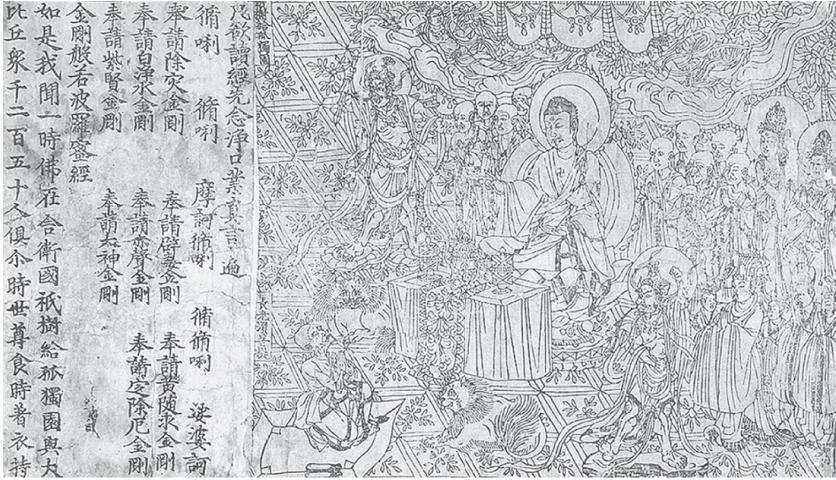 祇樹給孤獨園
凡欲讀經先念淨口業真言一遍
脩唎 脩唎 摩訶脩唎 脩脩唎 娑婆訶
奉請除災金剛 奉請辟毒金剛 奉請黃隨求金剛
奉請白淨水金剛 奉請赤聲金剛 奉請定除厄金剛
奉請紫賢金剛 奉請大神金剛
金剛般若波羅蜜經
如是我聞一時佛在舍衛國祇樹給孤獨園與大
比丘眾千二百五十人俱尒時世尊食時著衣持